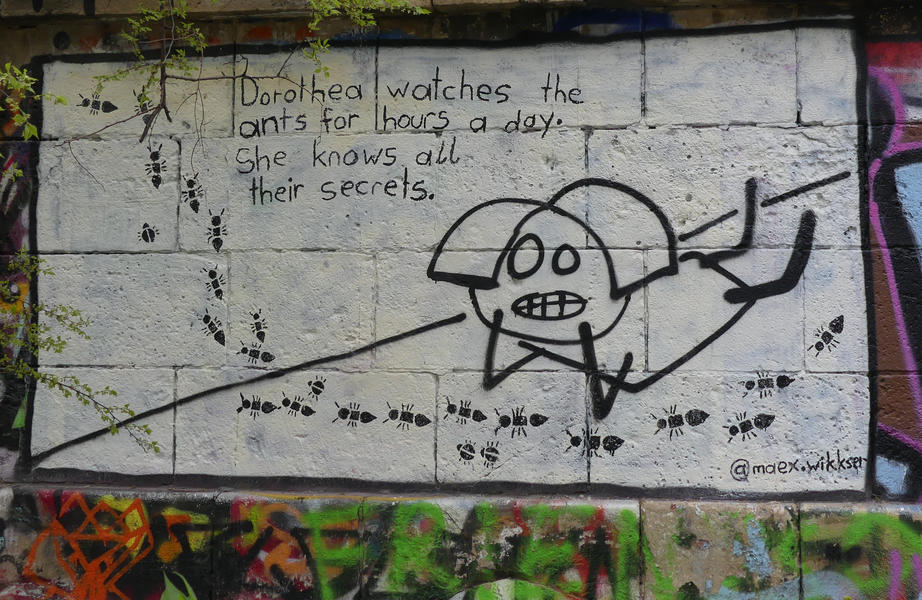 Dorothea watches the
ants for hours a day.
She knows all
their secrets.
@maex.wikkser